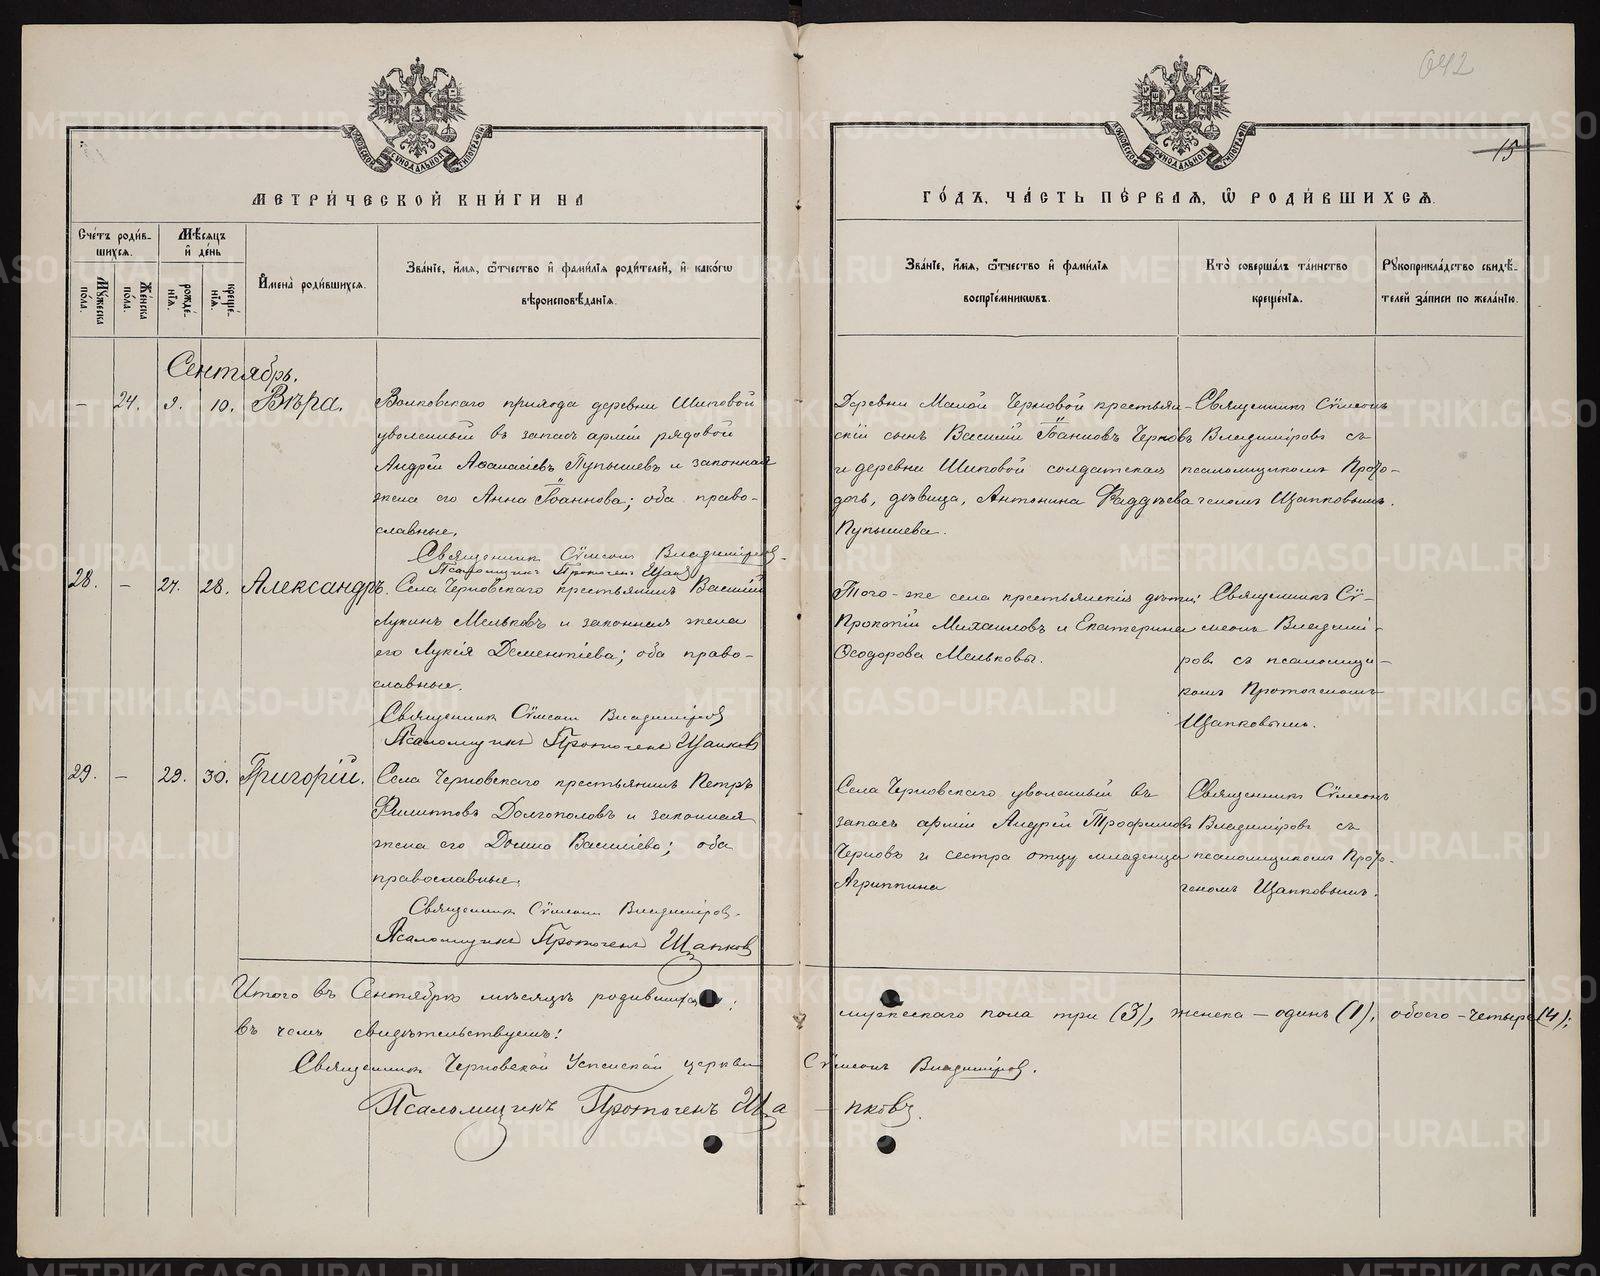 642
15
МЕТРИ́ЧЕСКОЙ КНИ́ГИ НА
ГО́ДЪ, ЧА́СТЬ ПЕ́РВАЯ, Ѽ РОДИ́ВШИХСЯ.
Сче́тъ роди́в-
шихся.
Мѣ́сяцъ
и҆ де́нь
Мꙋ́жеска
по́ла.
Же́нска
по́ла.
рожде́-
нїя.
креще́-
нїя.
И҆мена̀ роди́вшихся.
Зва́нїе, и҆́мя, ѻ҆́тчество и҆ фами́лїя роди́телей, и҆ како́гѡ
вѣроисповѣ́данїя.
Зва́нїе, и҆́мя, ѻ҆́тчество и҆ фами́лїя
воспрїе́мникѡвъ.
Кто̀ соверша́лъ та́инство
креще́нїя.
Рꙋкоприкла́дство свидѣ́-
телей за́писи по жела́нїю.
Сентябрь.
– 24. 9. 10. Вѣра.
Волковскаго прихода деревни Шиповой
уволенный въ запасъ арміи рядовой
Андрей Аѳанасіевъ Пупышевъ и законная
жена его Анна Іоаннова; оба право-
славные.
Священникъ Сѵмеонъ Владиміровъ.
Псаломщикъ Протогенъ Щапковъ
Деревни Малой Черновой крестьян-
скій сынъ Василій Іоанновъ Черновъ
и деревни Шиповой солдатская
дочь, дѣвица, Антонина Ѳаддѣева
Пупышева.
Священникъ Сѵмеонъ
Владиміровъ съ
псаломщикомъ Прото-
геномъ Щапковымъ.
28. – 27. 28. Александръ.
Села Черновскаго крестьянинъ Василій
Лукинъ Мельковъ и законная жена
его Лукія Дементіева; оба право-
славные.
Священникъ Сѵмеонъ Владиміровъ
Псаломщикъ Протогенъ Щапковъ
Того-же села крестьянскія дѣти:
Прокопій Михаиловъ и Екатерина
Ѳеодорова Мельковы.
Священникъ Сѵ-
меонъ Владимі-
ровъ съ псаломщи-
комъ Протогеномъ
Щапковымъ.
29. – 29. 30. Григорій.
Села Черновскаго крестьянинъ Петръ
Филипповъ Долгополовъ и законная
жена его Домна Василіева; оба
православные.
Священникъ Сѵмеонъ Владиміровъ.
Псаломщикъ Протогенъ Щапковъ
Села Черновскаго уволенный въ
запасъ арміи Андрей Трофимовъ
Черновъ и сестра отцу младенца
Агриппина
Священникъ Сѵмеонъ
Владиміровъ съ
псаломщикомъ Прото-
геномъ Щапковымъ.
Итого въ Сентябрѣ мѣсяцѣ родившихся:
мужескаго пола три (3), женска – одинъ (1), обоего – четыре (4);
въ чемъ свидѣтельствуемъ:
Священникъ Черновской Успенской церкви Сѵмеонъ Владиміровъ.
Псаломщикъ Протогенъ Ща – пковъ.